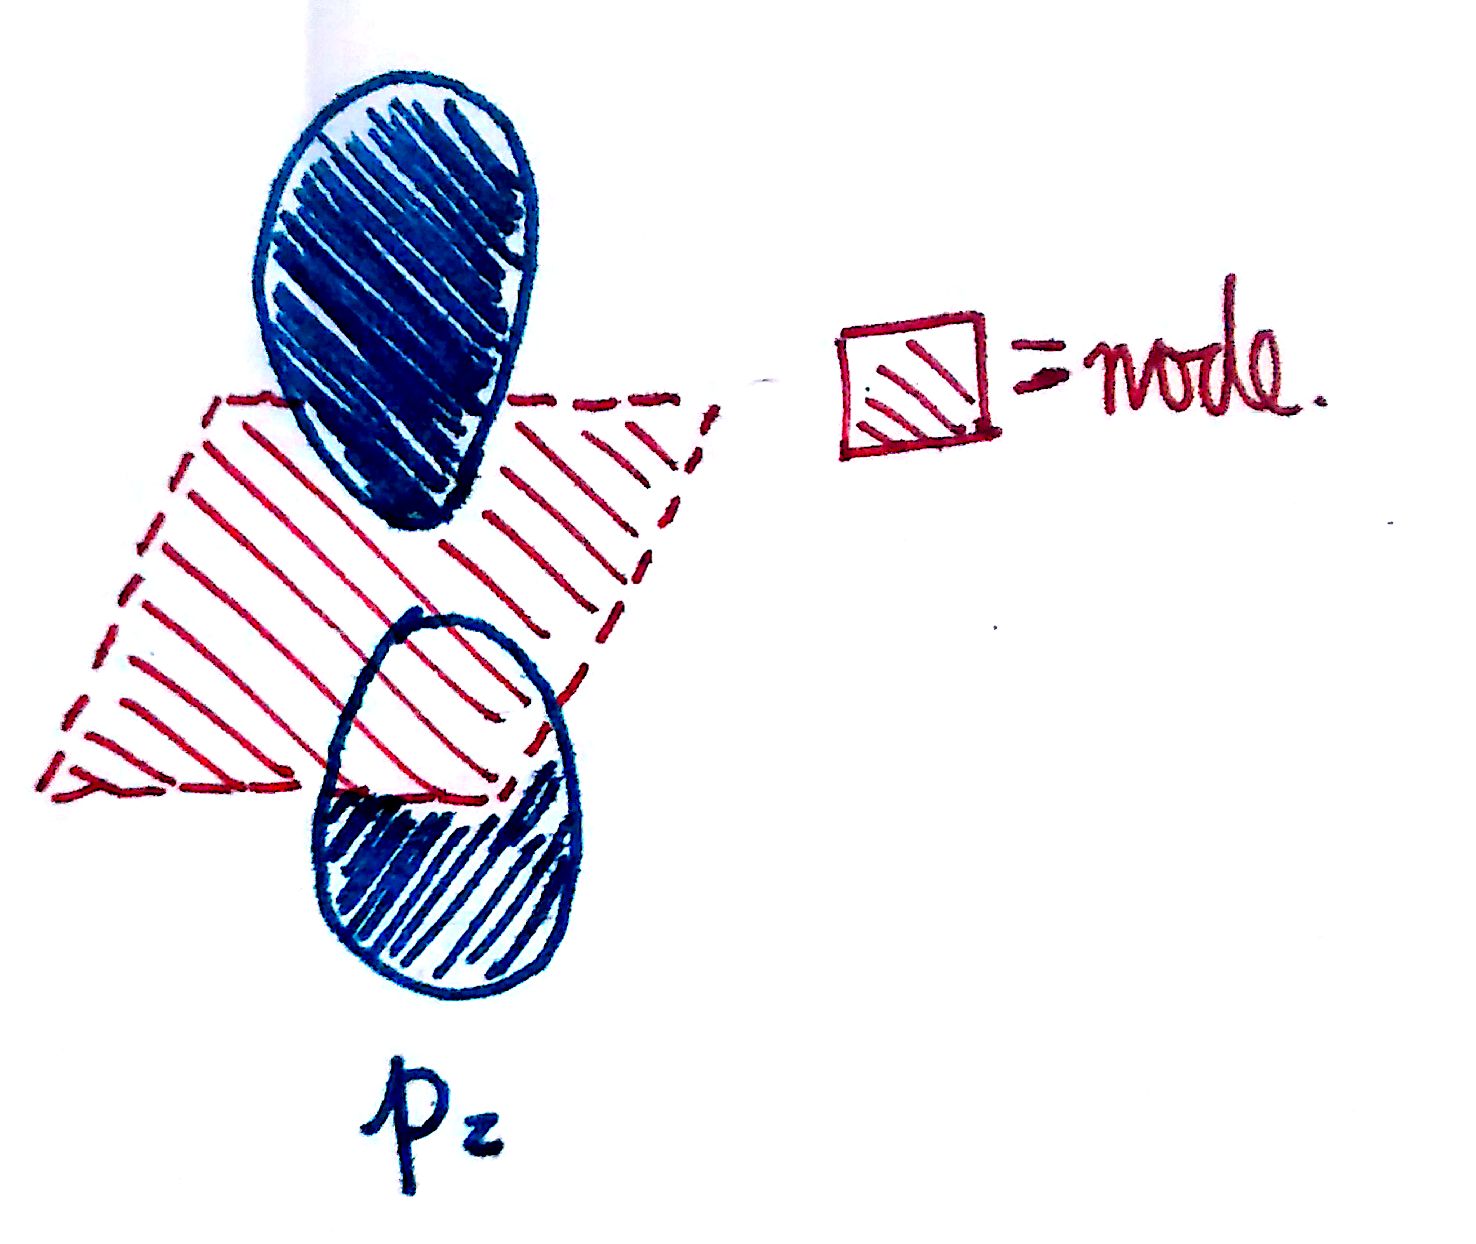 = node.
pz